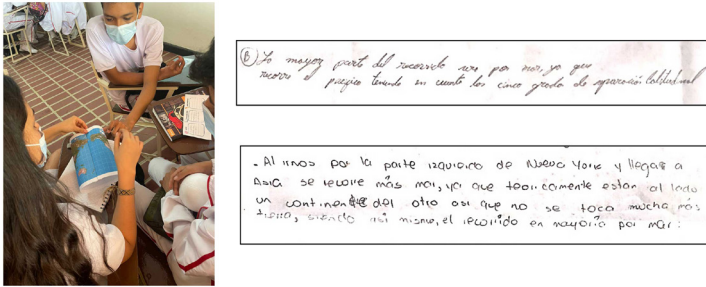 B) La mayor parte del recorrido era por mar, ya que
recorre el pacifico teniendo en cuenta los cinco grados de separación latitudinal
- Al irnos por la parte izquierda de Nueva York y llegar a
Asia se recorre más mar, ya que teoricamente estan al lado
un continente del otro asi que no se toca mucha más
tierra, siendo asi mismo, el recorrido en mayoria por mar.